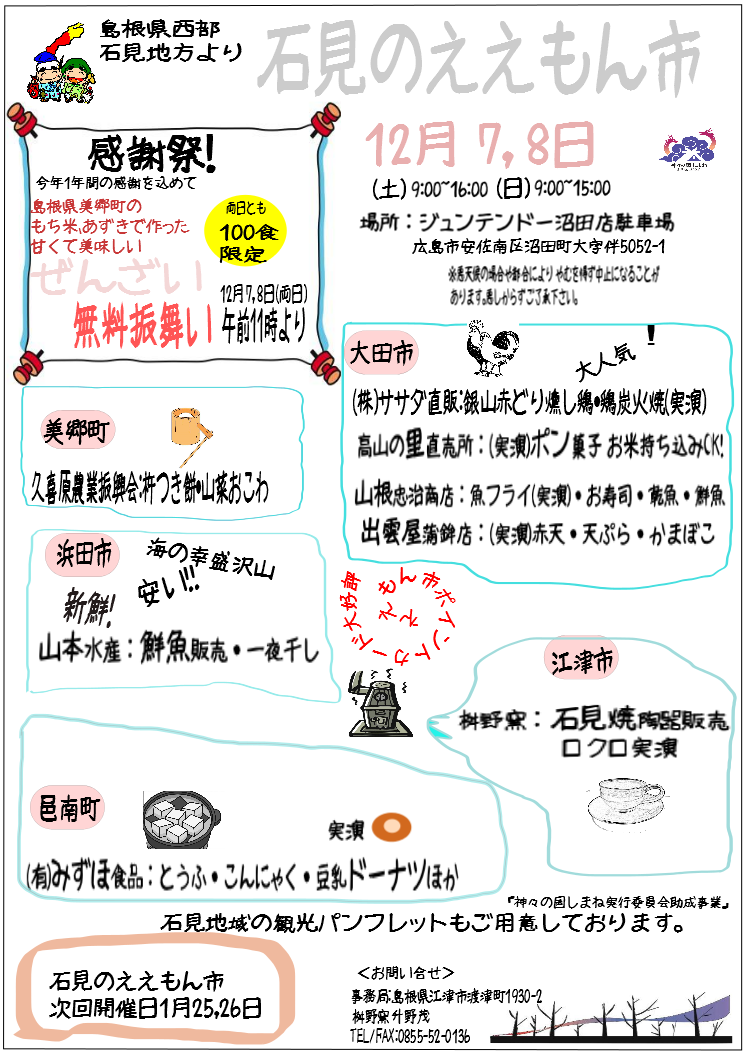 島根県西部
石見地方より
石見のええもん市
12月 7,8日
(土) 9:00~16:00 (日) 9:00~15:00
場所：ジュンテンドー沼田店駐車場
広島市安佐南区沼田町大字伴5052-1
※悪天候の場合や都合により やむを得ず中止になることが
あります。悪しからずご了承下さい。
感謝祭!
今年1年間の感謝を込めて
島根県美郷町の
もち米,あずきで作った
甘くて美味しい
ぜんざい
無料振舞い
両日とも
100食
限定
12月7,8日(両日)
午前11時より
大田市
大人気!
(株)ササダ直販:銀山赤どり燻し鶏・鶏炭火焼(実演)
高山の里直売所：(実演)ポン菓子 お米持ち込みOK!
山根忠治商店：魚フライ(実演)・お寿司・乾魚・鮮魚
出雲屋蒲鉾店：(実演)赤天・天ぷら・かまぼこ
美郷町
久喜原農業振興会:杵つき餅・山菜おこわ
浜田市
海の幸盛沢山
新鮮!
安い!!
山本水産：鮮魚販売・一夜干し
ええもん市ポイントカード大好評
江津市
桝野窯：石見焼陶器販売
ロクロ実演
邑南町
実演
(有)みずほ食品：とうふ・こんにゃく・豆乳ドーナツほか
『神々の国しまね実行委員会助成事業』
石見地域の観光パンフレットもご用意しております。
石見のええもん市
次回開催日1月25,26日
＜お問い合せ＞
事務局:島根県江津市渡津町1930-2
桝野窯 升野茂
TEL/FAX:0855-52-0136